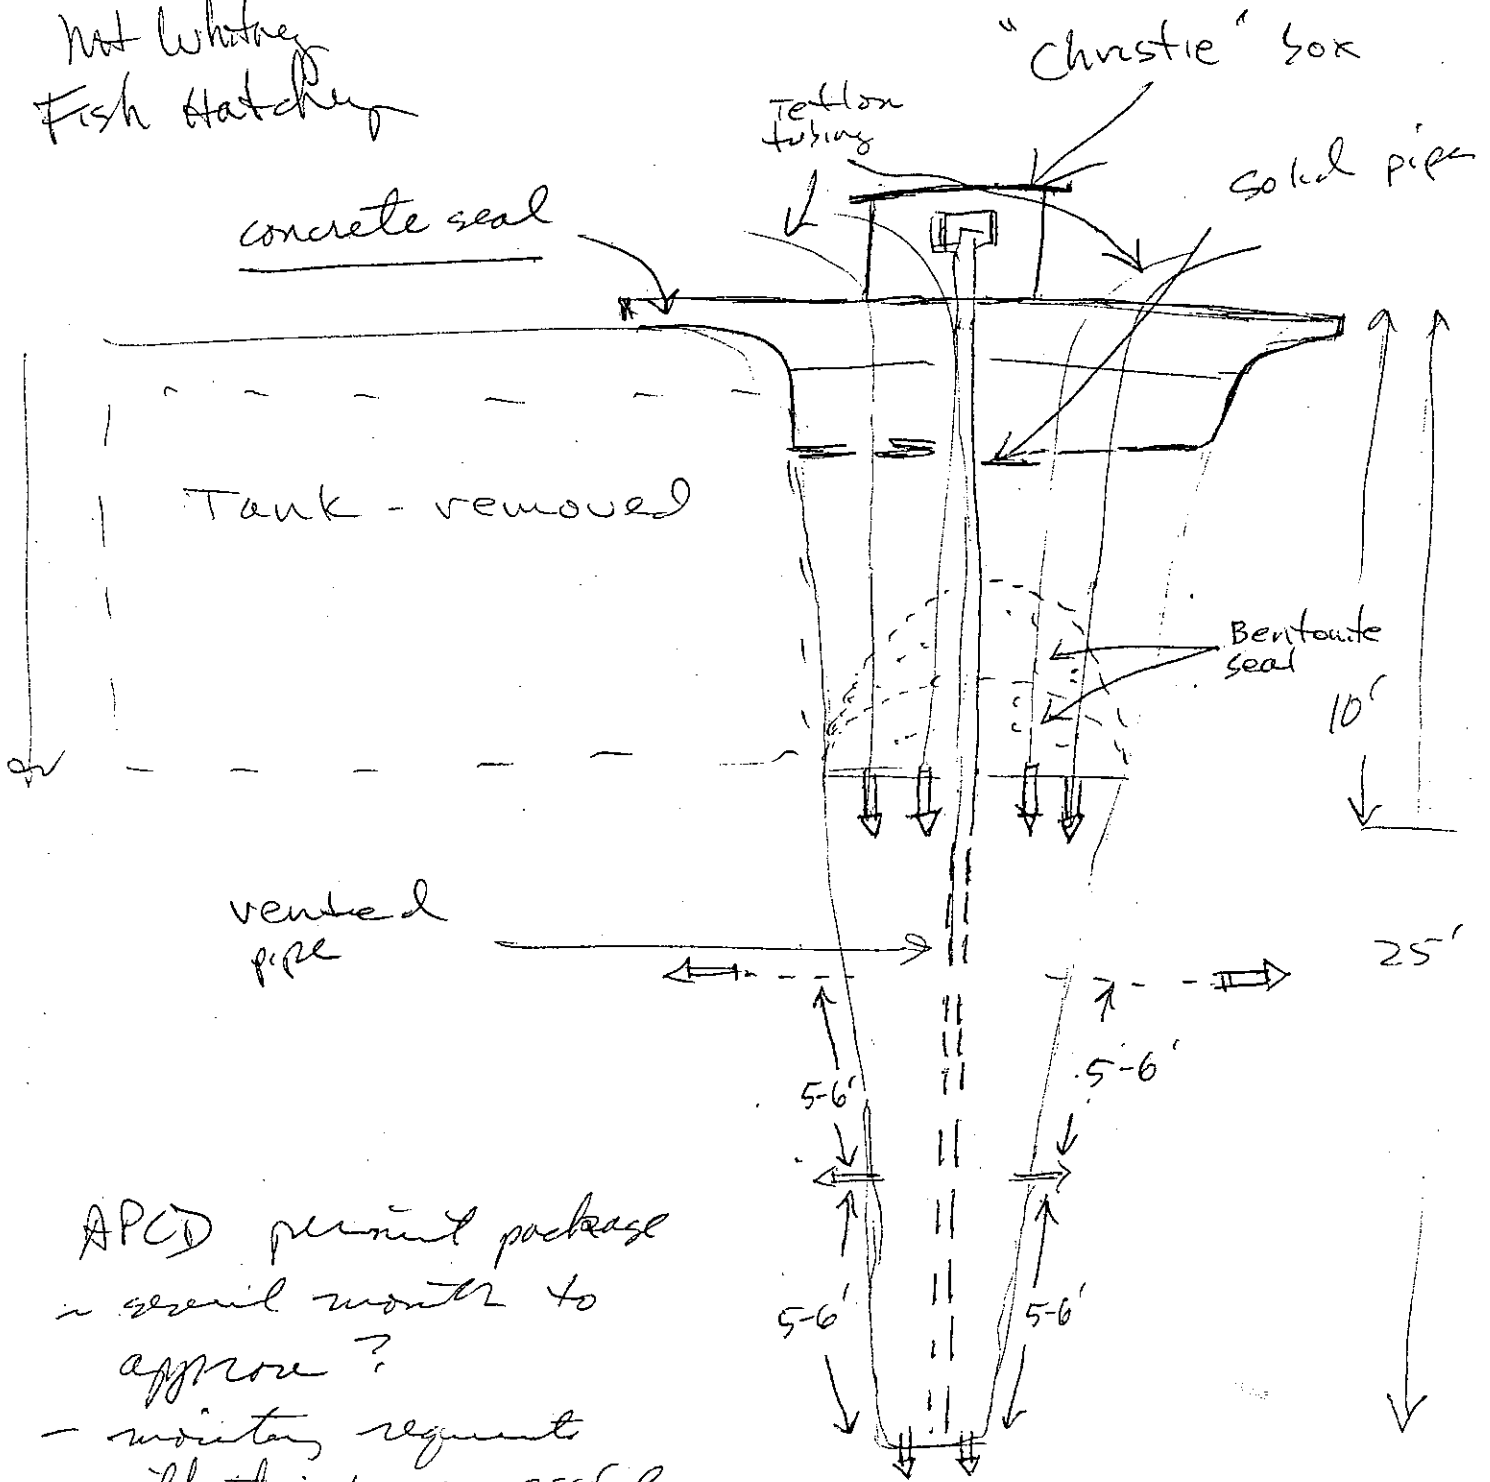 Mt Whitney
Fish Hatchery
"Christie" box
Teflon
tubing
solid pipe
concrete seal
Tank - removed
Bentonite
seal
10'
vented
pipe
25'
5-6'
5-6'
5-6'
5-6'
APCD permit package
~ several month to
approve ?
- monitoring